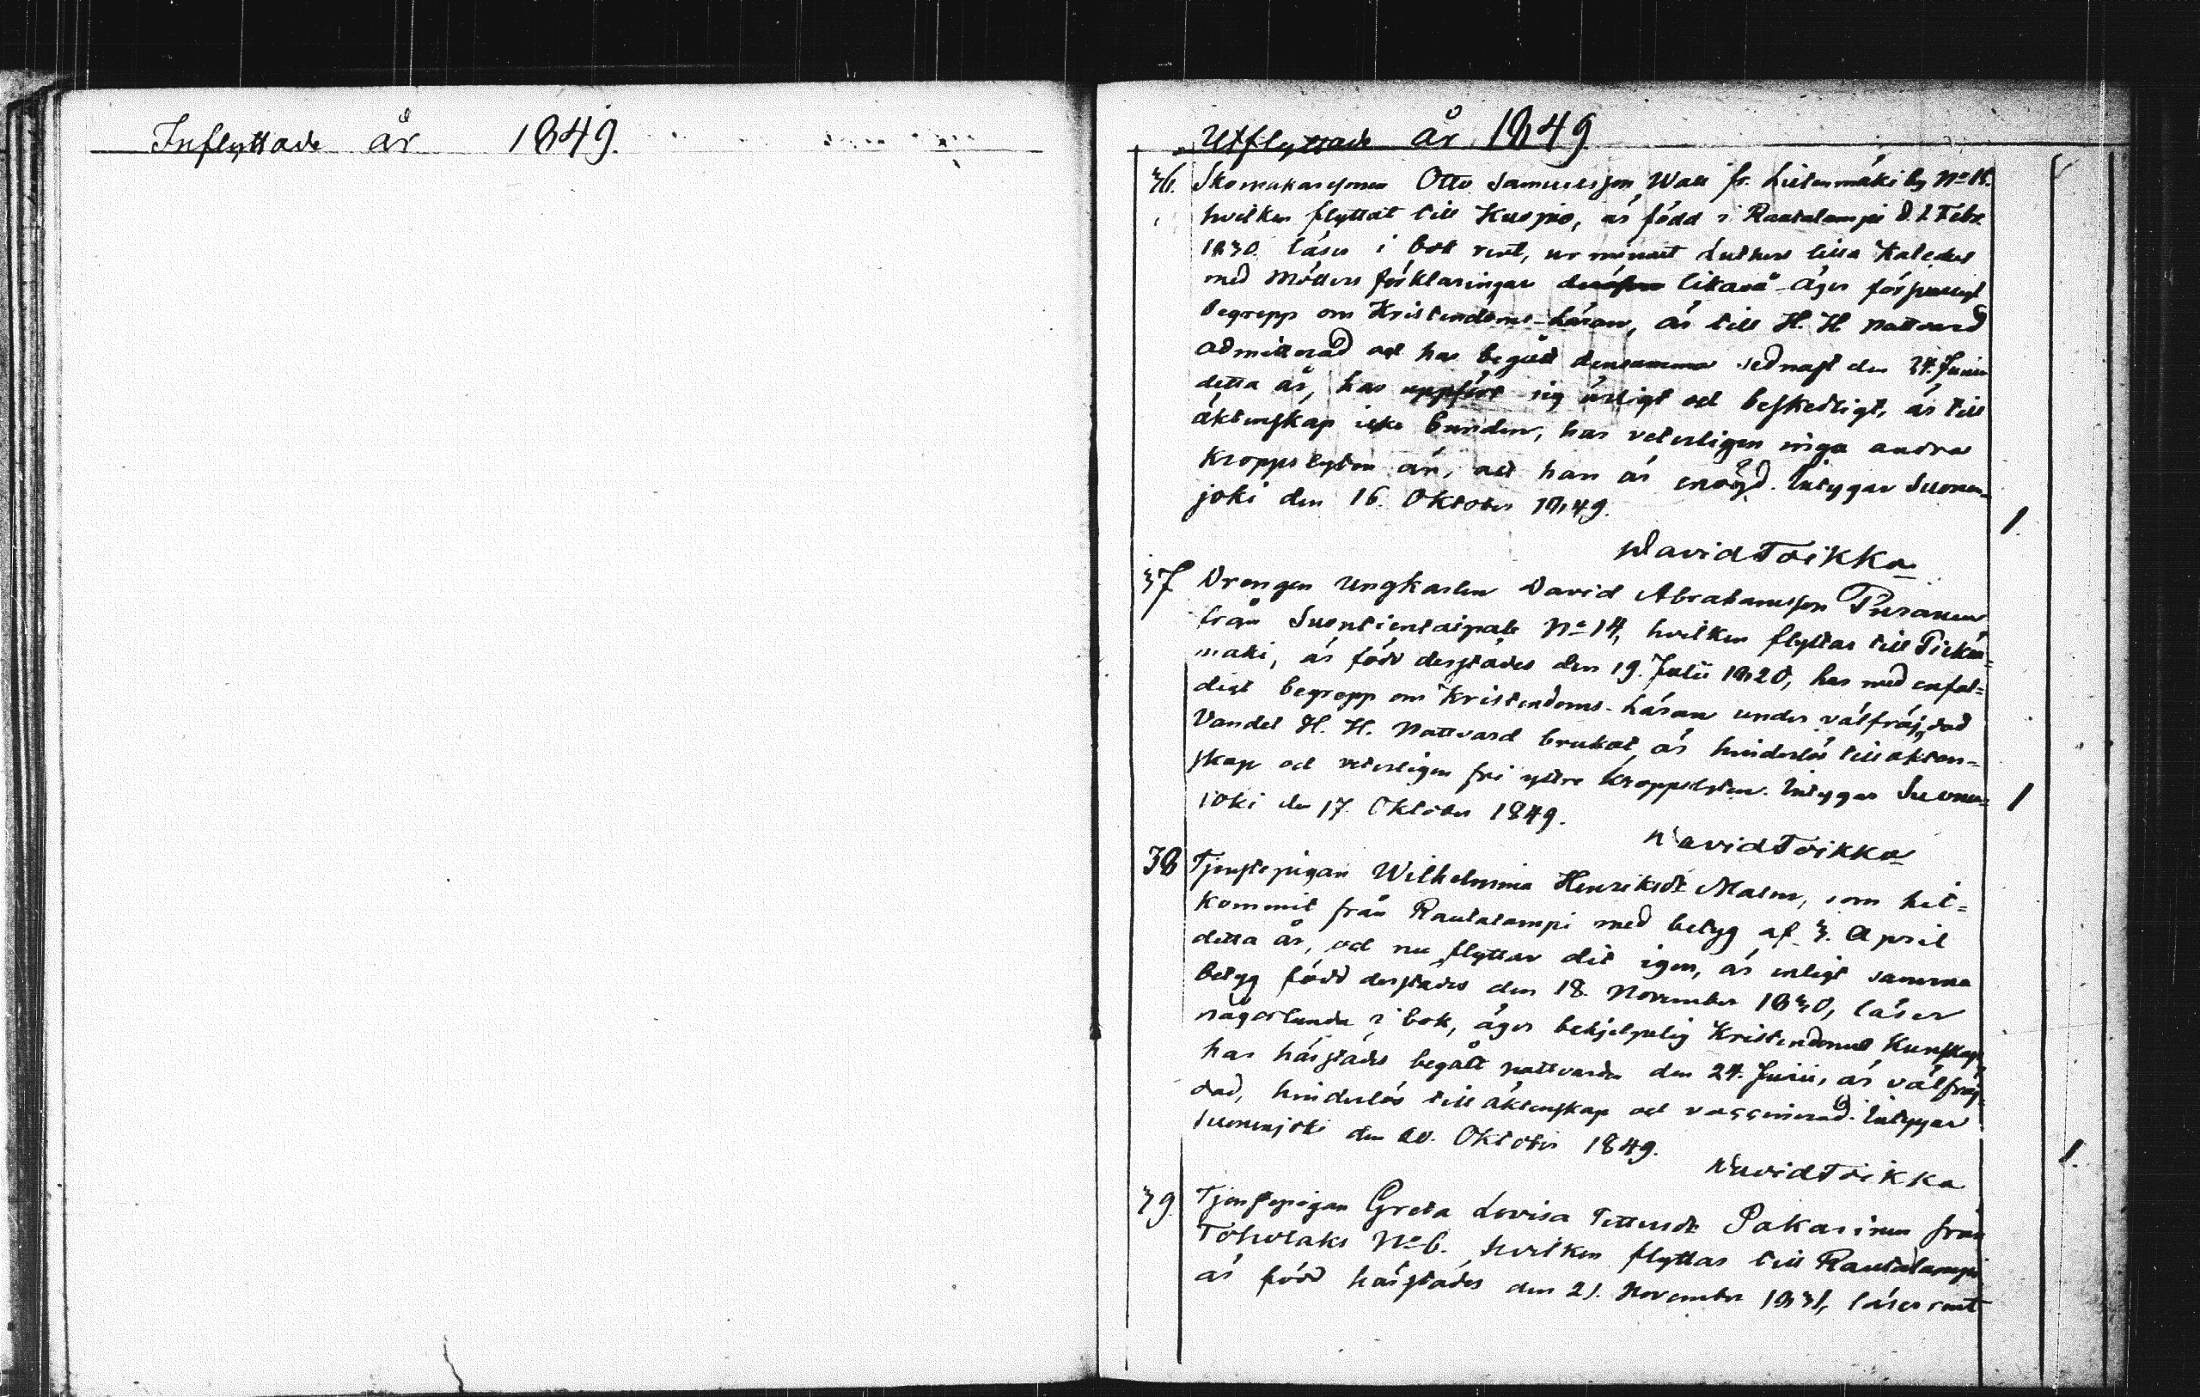 Inflyttade år 1849.
Utflyttade år 1849
36. Skomakaresonen Otto Samuelsson Wall fr. Lietenmäki by No 15.
hvilken flyttat till Kuopio, är född i Rautalampi d. 2 Febr.
1830. läser i bok rent, ur minnet Luthers lilla Kateches
med Möllers förklaringar likaså äger
begrepp om Kristendoms-Läran, är till H. H. Nattvard
admitterad och har begått densamma sednast den 24. Junii
detta år, har uppfört sig ärligt och beskedligt, är till
äktenskap icke bunden, har veterligen inga andra
Kroppslyten än, att han är enögd. Intygar Suonen-
joki den 16. Oktober 1849.
1.
David Toikka
37 Drengen Ungkarlen David Abrahamsson Pursanen
från Suontientaipale No 14, hvilken flyttar till Pieksä=
mäki, är född derstädes den 19. Julii 1820, har med enfal=
digt begrepp om Kristendoms-Läran under välfräjdad
Vandel H. H. Nattvard brukat är hinderlös till äkten=
skap och veterligen fri yttre kroppslyten. Intygar Suonen=
joki den 17. Oktober 1849.
1
David Toikka
38 Tjenstepigan Wilhelmina Henriksdr Malm, som hit=
kommit från Rautalampi med betyg af 3. April
detta år, och nu flyttar dit igen, är enligt samma
betyg född derstädes den 18. November 1830, läser
någorlunda i bok, äger behjelpelig Kristendoms Kunskap,
har härstädes begått nattvarden den 24. Junii, är välfräj-
dad, hinderlös till äktenskap och vaccinerad. Intygar
Suonenjoki den 20. Oktober 1849.
1.
David Toikka
39. Tjenstepigan Greta Lovisa Pettersdr Pakarinen från
Toholaks No 6. hvilken flyttar till Rautalampi
är född härstädes den 21. November 1831, läser rent